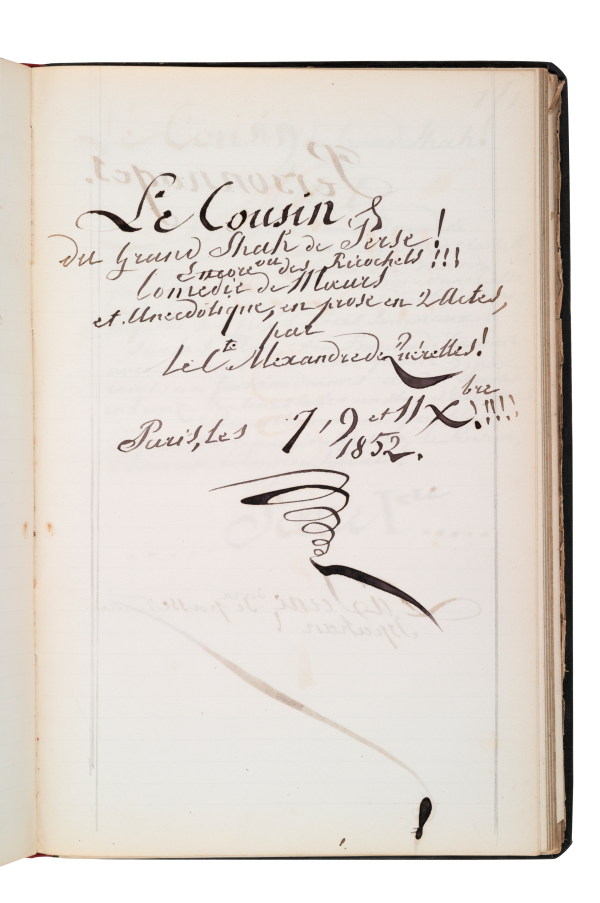 Le Cousin
du Grand Shah de Perse!
Encore ou des Ricochets!!!
Comédie de Mœurs
et Anecdotique, en prose en 2 Actes,
par
Le Cte Alexandre de Quérelles!
Paris, les 7, 9 et 11 Xbre!!!!
1852.